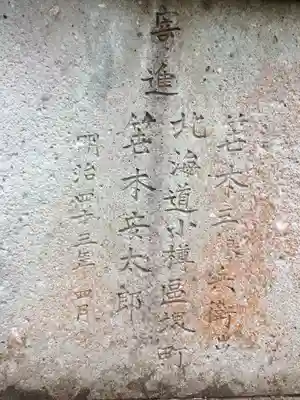 寄進
笹木三 兵衛
北海道小樽區堺町
笹木安太郎
明治四十三年四月